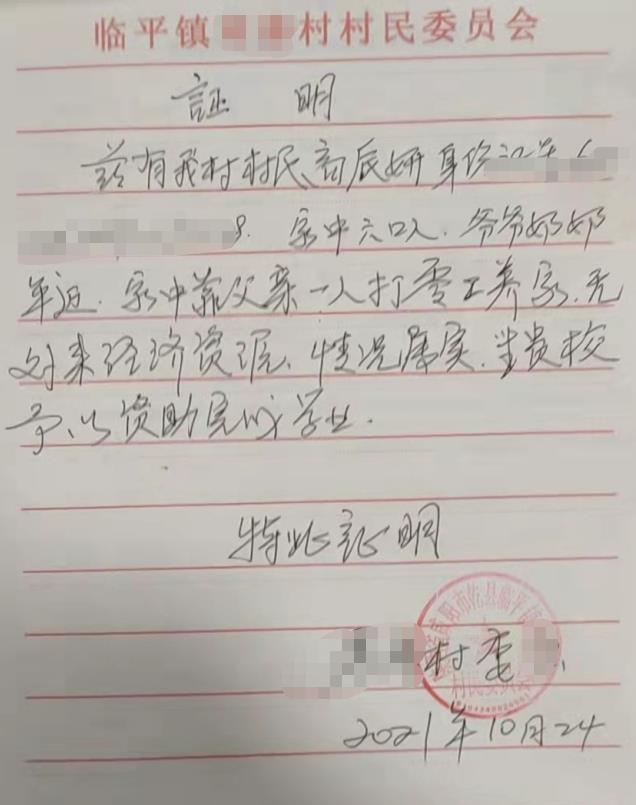 临平镇 村村民委员会
证 明
兹有我村村民商辰妍身份证号6
8. 家中六口人、爷爷奶奶
年迈. 家中靠父亲一人打零工养家.无
对来经济资源、情况属实.望贵校
予以资助完成学业.
特此证明
村委
咸阳市乾县临平镇
村民委员会
2021年10月24